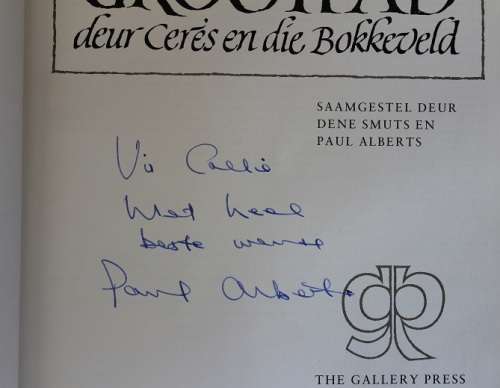 GROOTPAD
deur Ceres en die Bokkeveld
SAAMGESTEL DEUR
DENE SMUTS EN
PAUL ALBERTS
Vir Callie
Met heel
beste wense
Paul Alberts
THE GALLERY PRESS